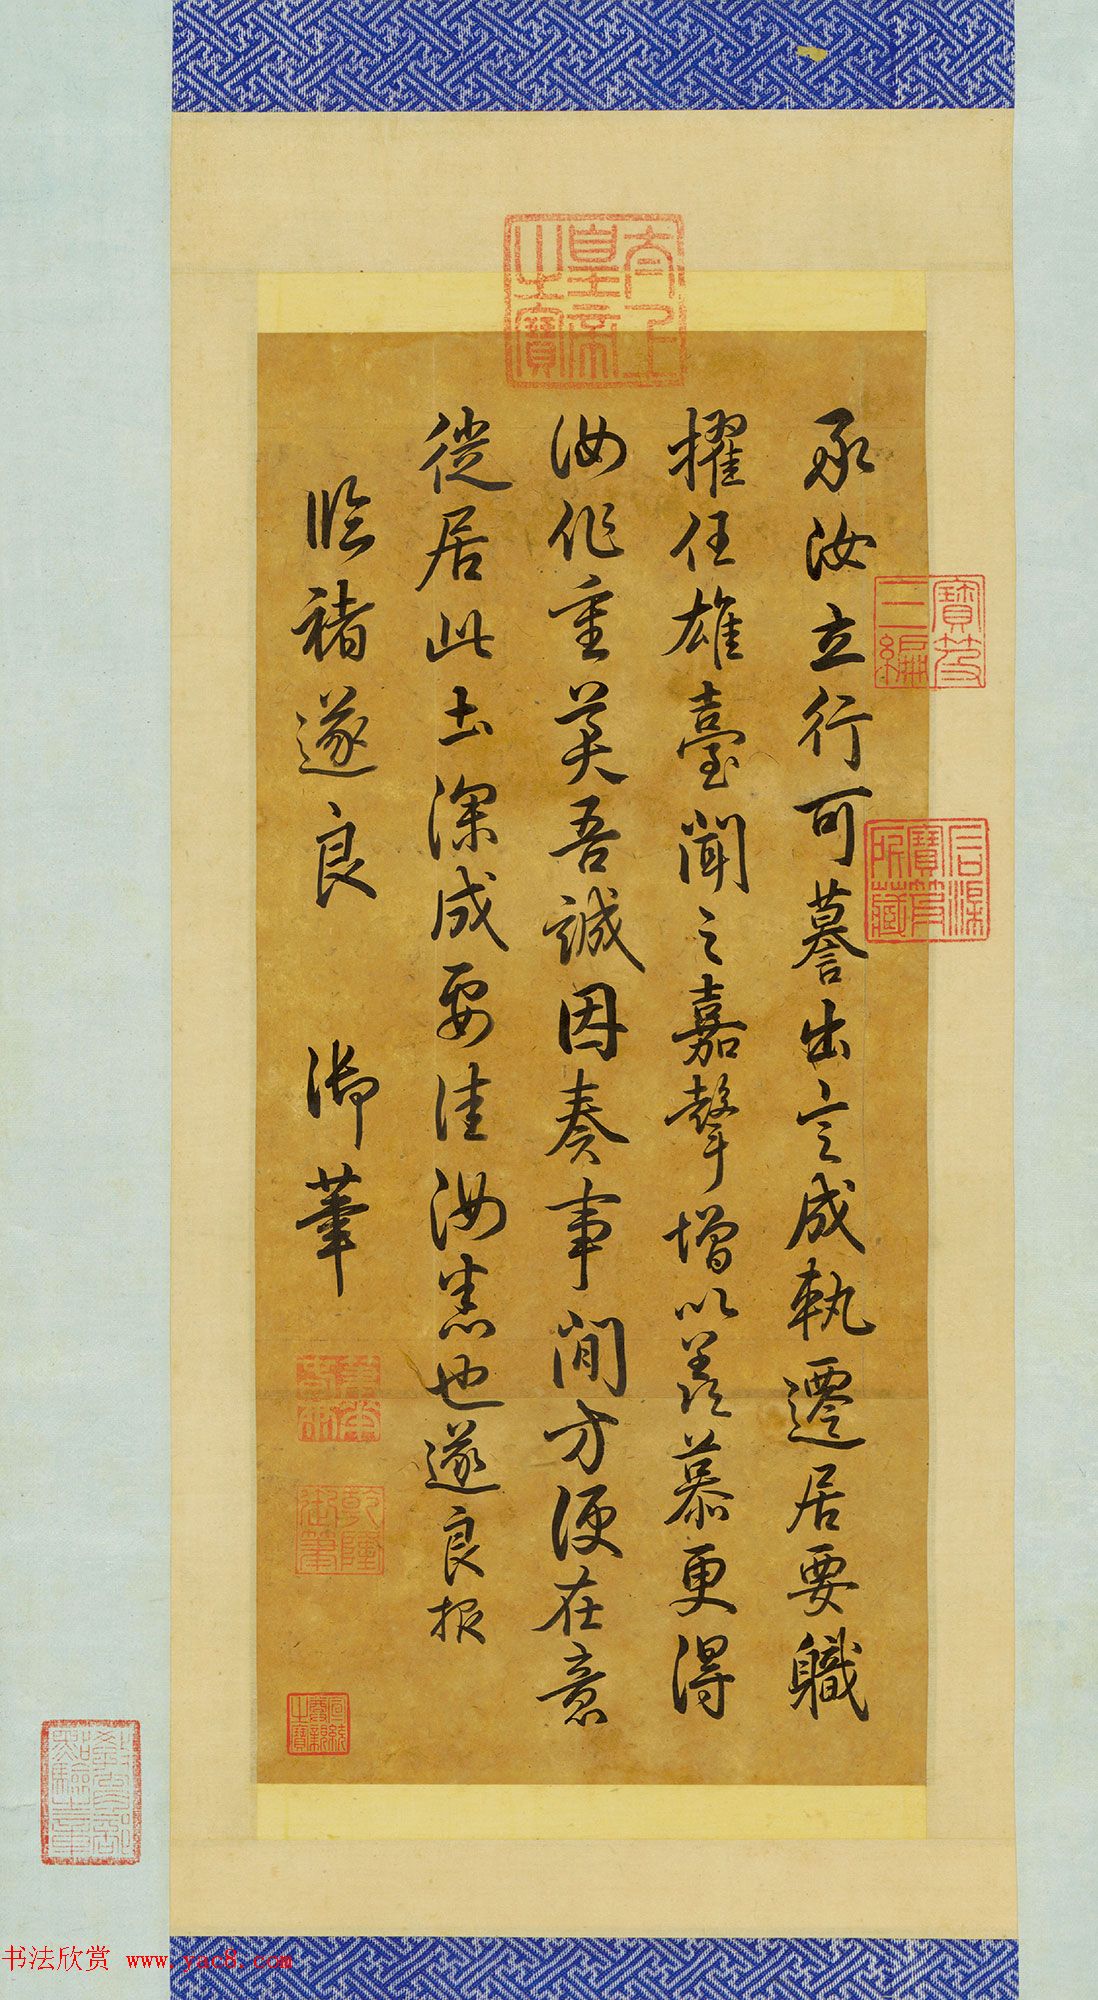 承汝立行可羡出言成執遷居要職
擢任雄臺聞之嘉聲增以羨慕更得
汝作重莫吾誠因奏事間方便在意
從居此土深成要佳汝悉也遂良報
臨褚遂良 御筆
太上皇帝之寶
寶笈三編
石渠寶笈所藏
乾隆御筆
宣統尊親之寶
教育部點驗之章
书法欣赏 www.yac8.com